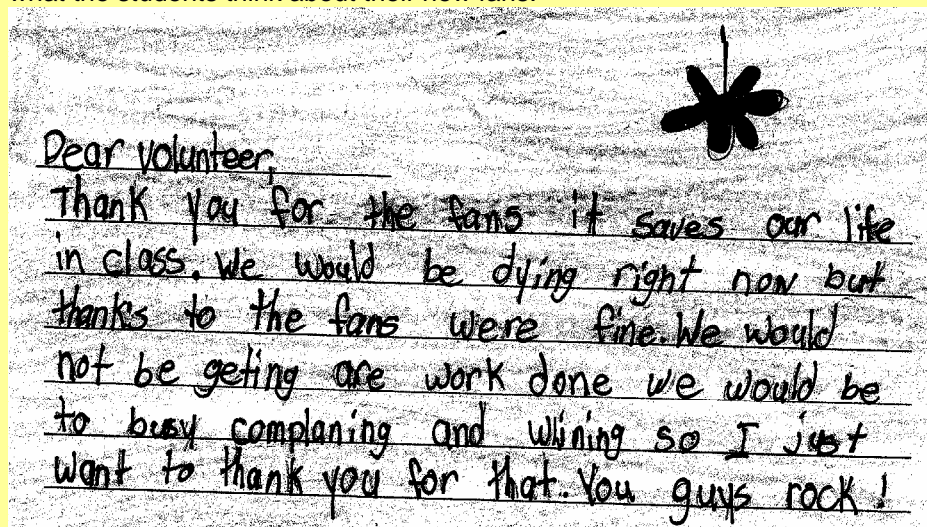 what the students think about their new fans.
Dear volunteer,
Thank you for the fans it saves our life
in class. We would be dying right now but
thanks to the fans were fine. We would
not be geting are work done we would be
to busy complaning and wining so I just
want to thank you for that. You guys rock!